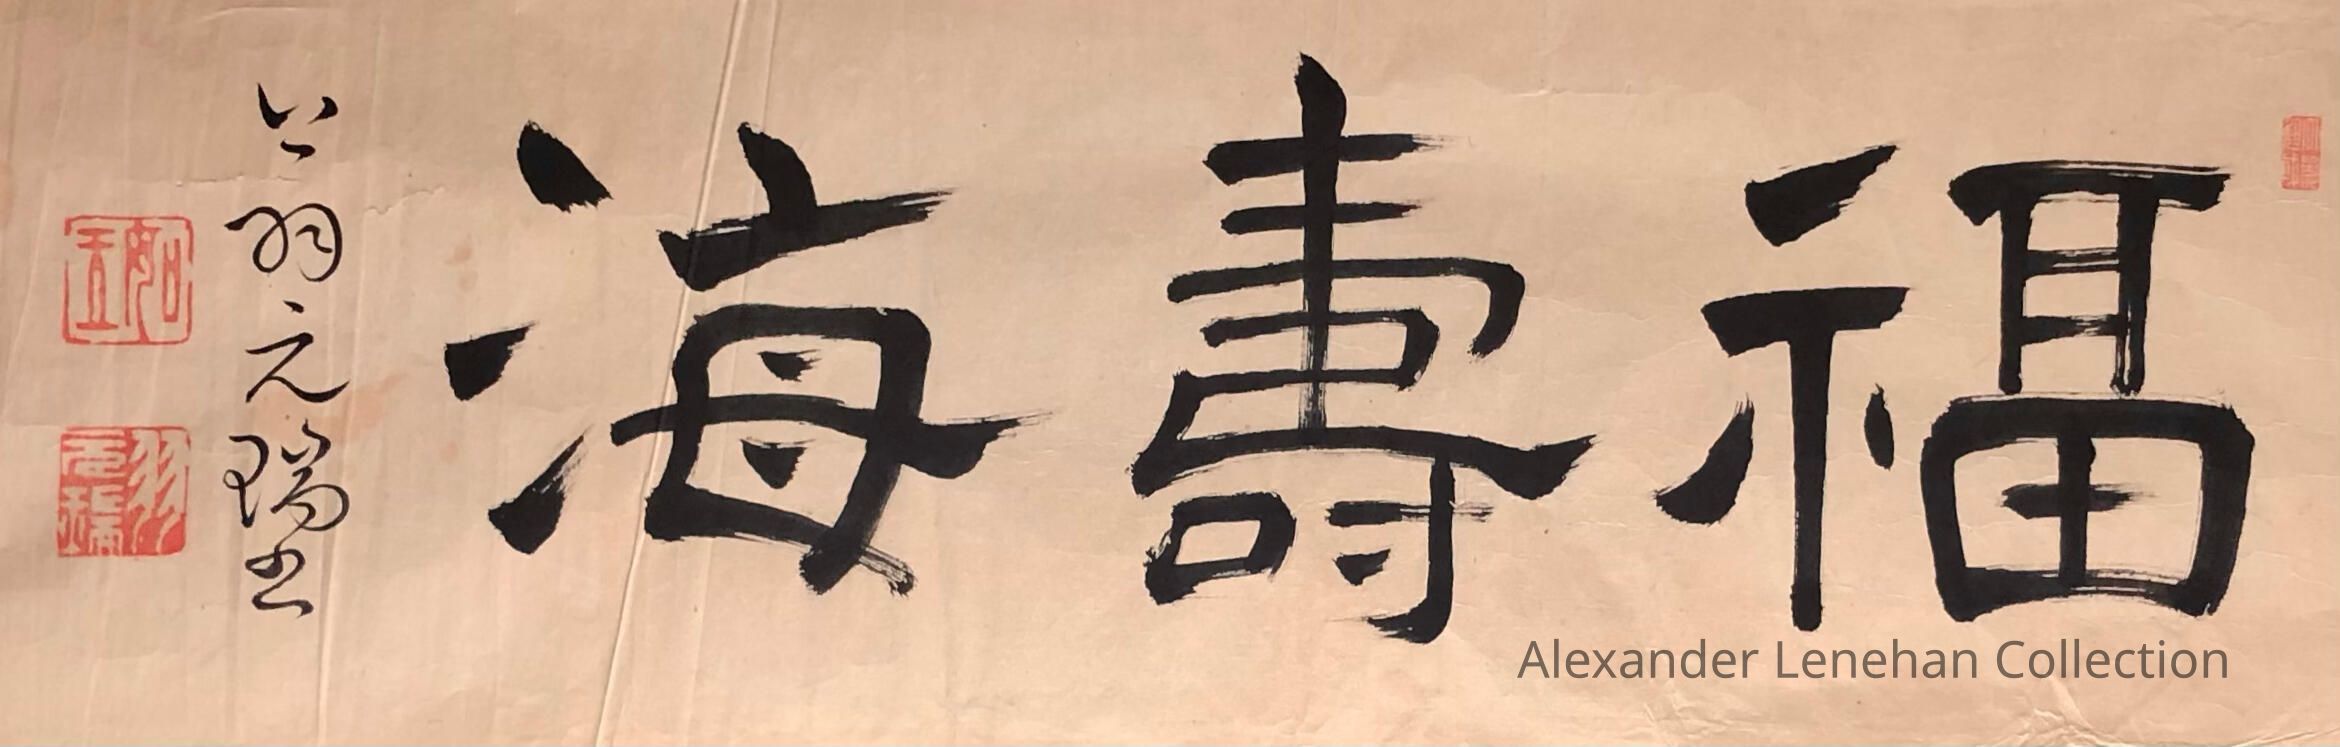 福壽海
羽元瑞書
羽元瑞
Alexander Lenehan Collection